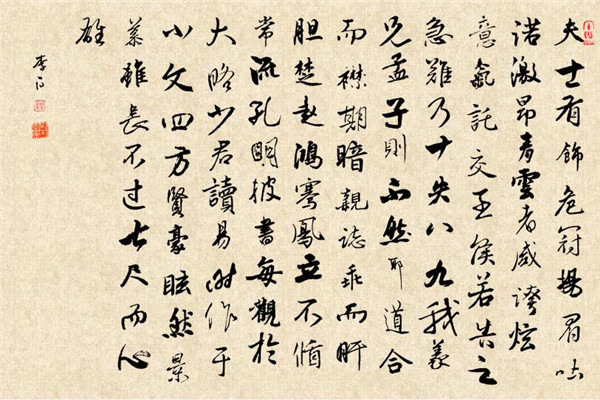 夫士有飾危冠揚眉吐
諾激昂青雲者咸誇炫
意氣託交王侯若告之
急難乃十失八九我義
兄孟子則不然耶道合
而襟期暗親誌乖而肝
胆楚越鴻騫鳳立不循
常流孔明披書每觀於
大略少君讀易時作于
小文四方賢豪眩然景
慕雖長不过七尺而心
雄
李